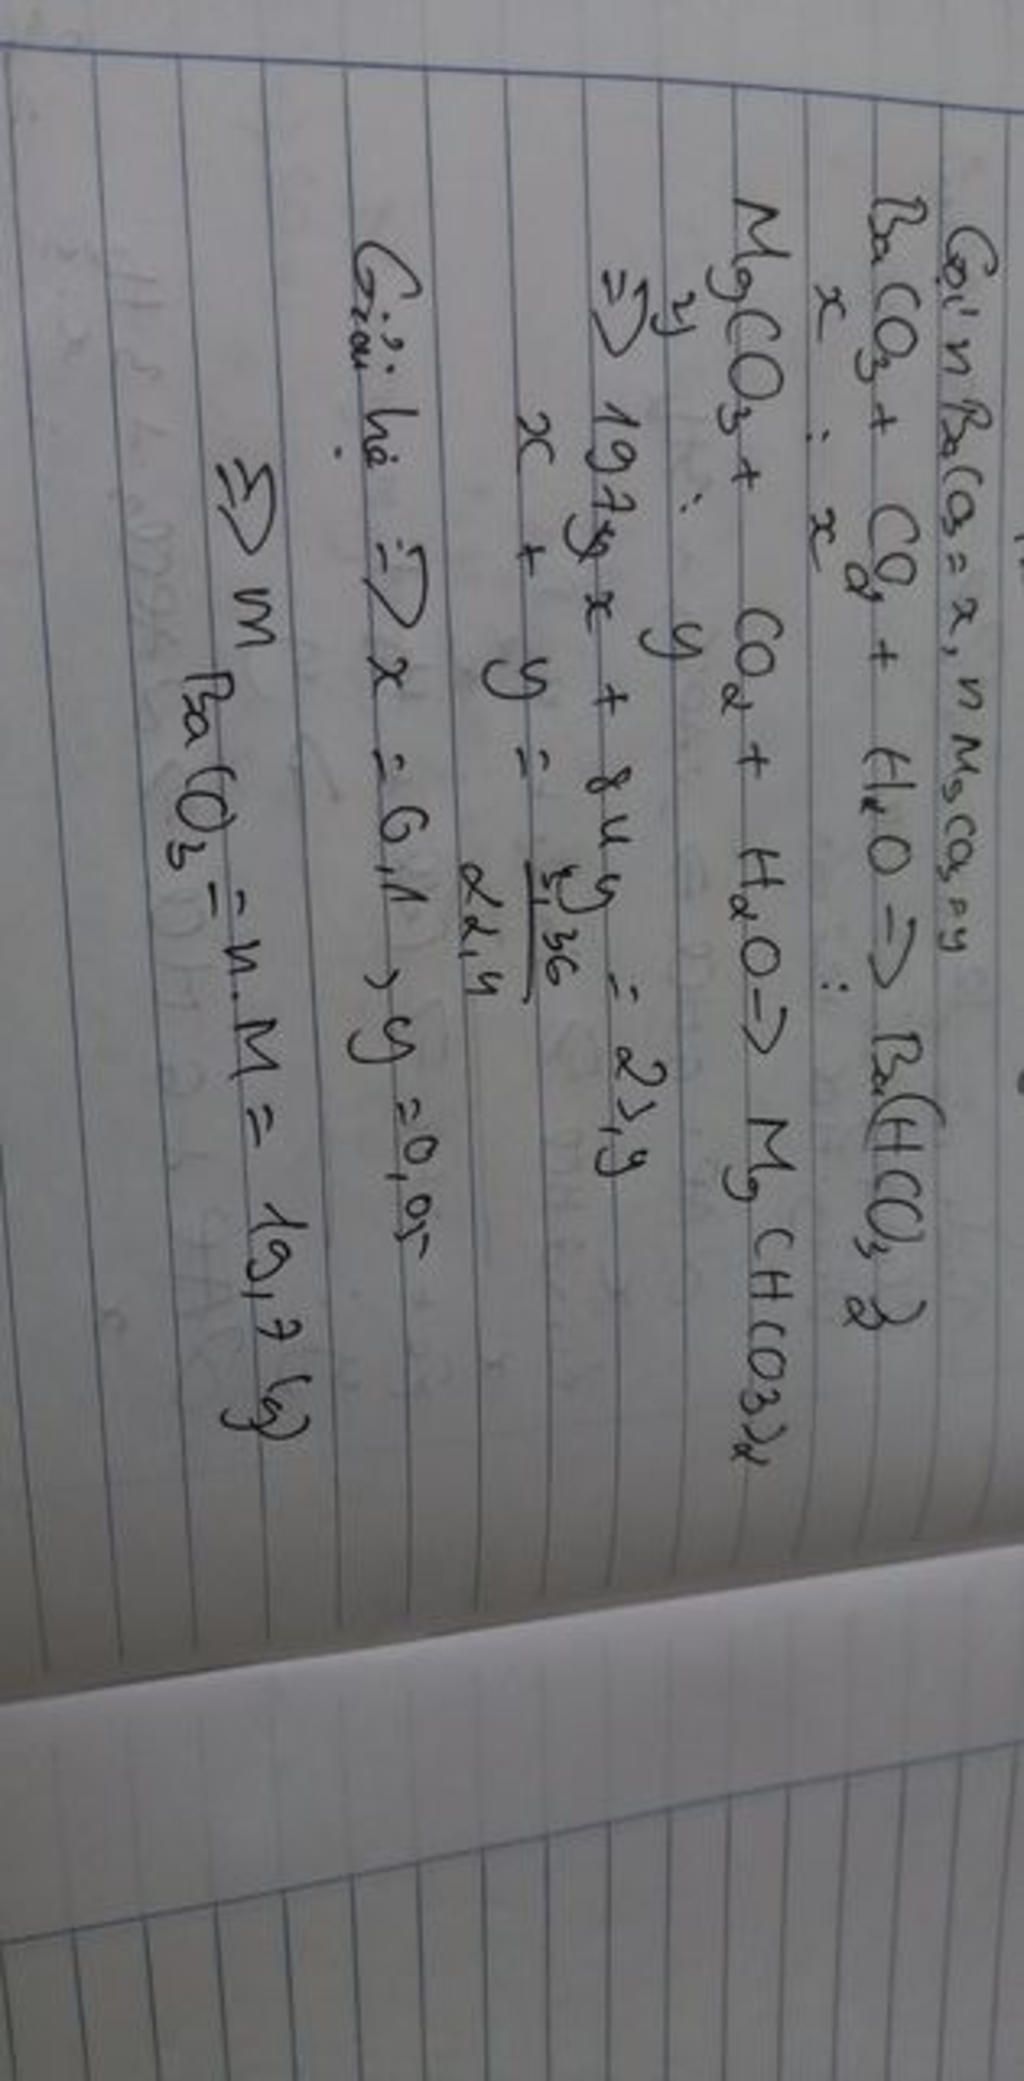 Gọi nBaCO3 = x, nMgCO3 = y
BaCO3 + CO2 + H2O => Ba(HCO3)2
x : x :
MgCO3 + CO2 + H2O => Mg(HCO3)2
y : y
=> 197 x + 84 y = 23,9
x + y = 3,36 / 22,4
Giải hệ => x = 0,1 , y = 0,05
=> m BaCO3 = n.M = 19,7 (g)